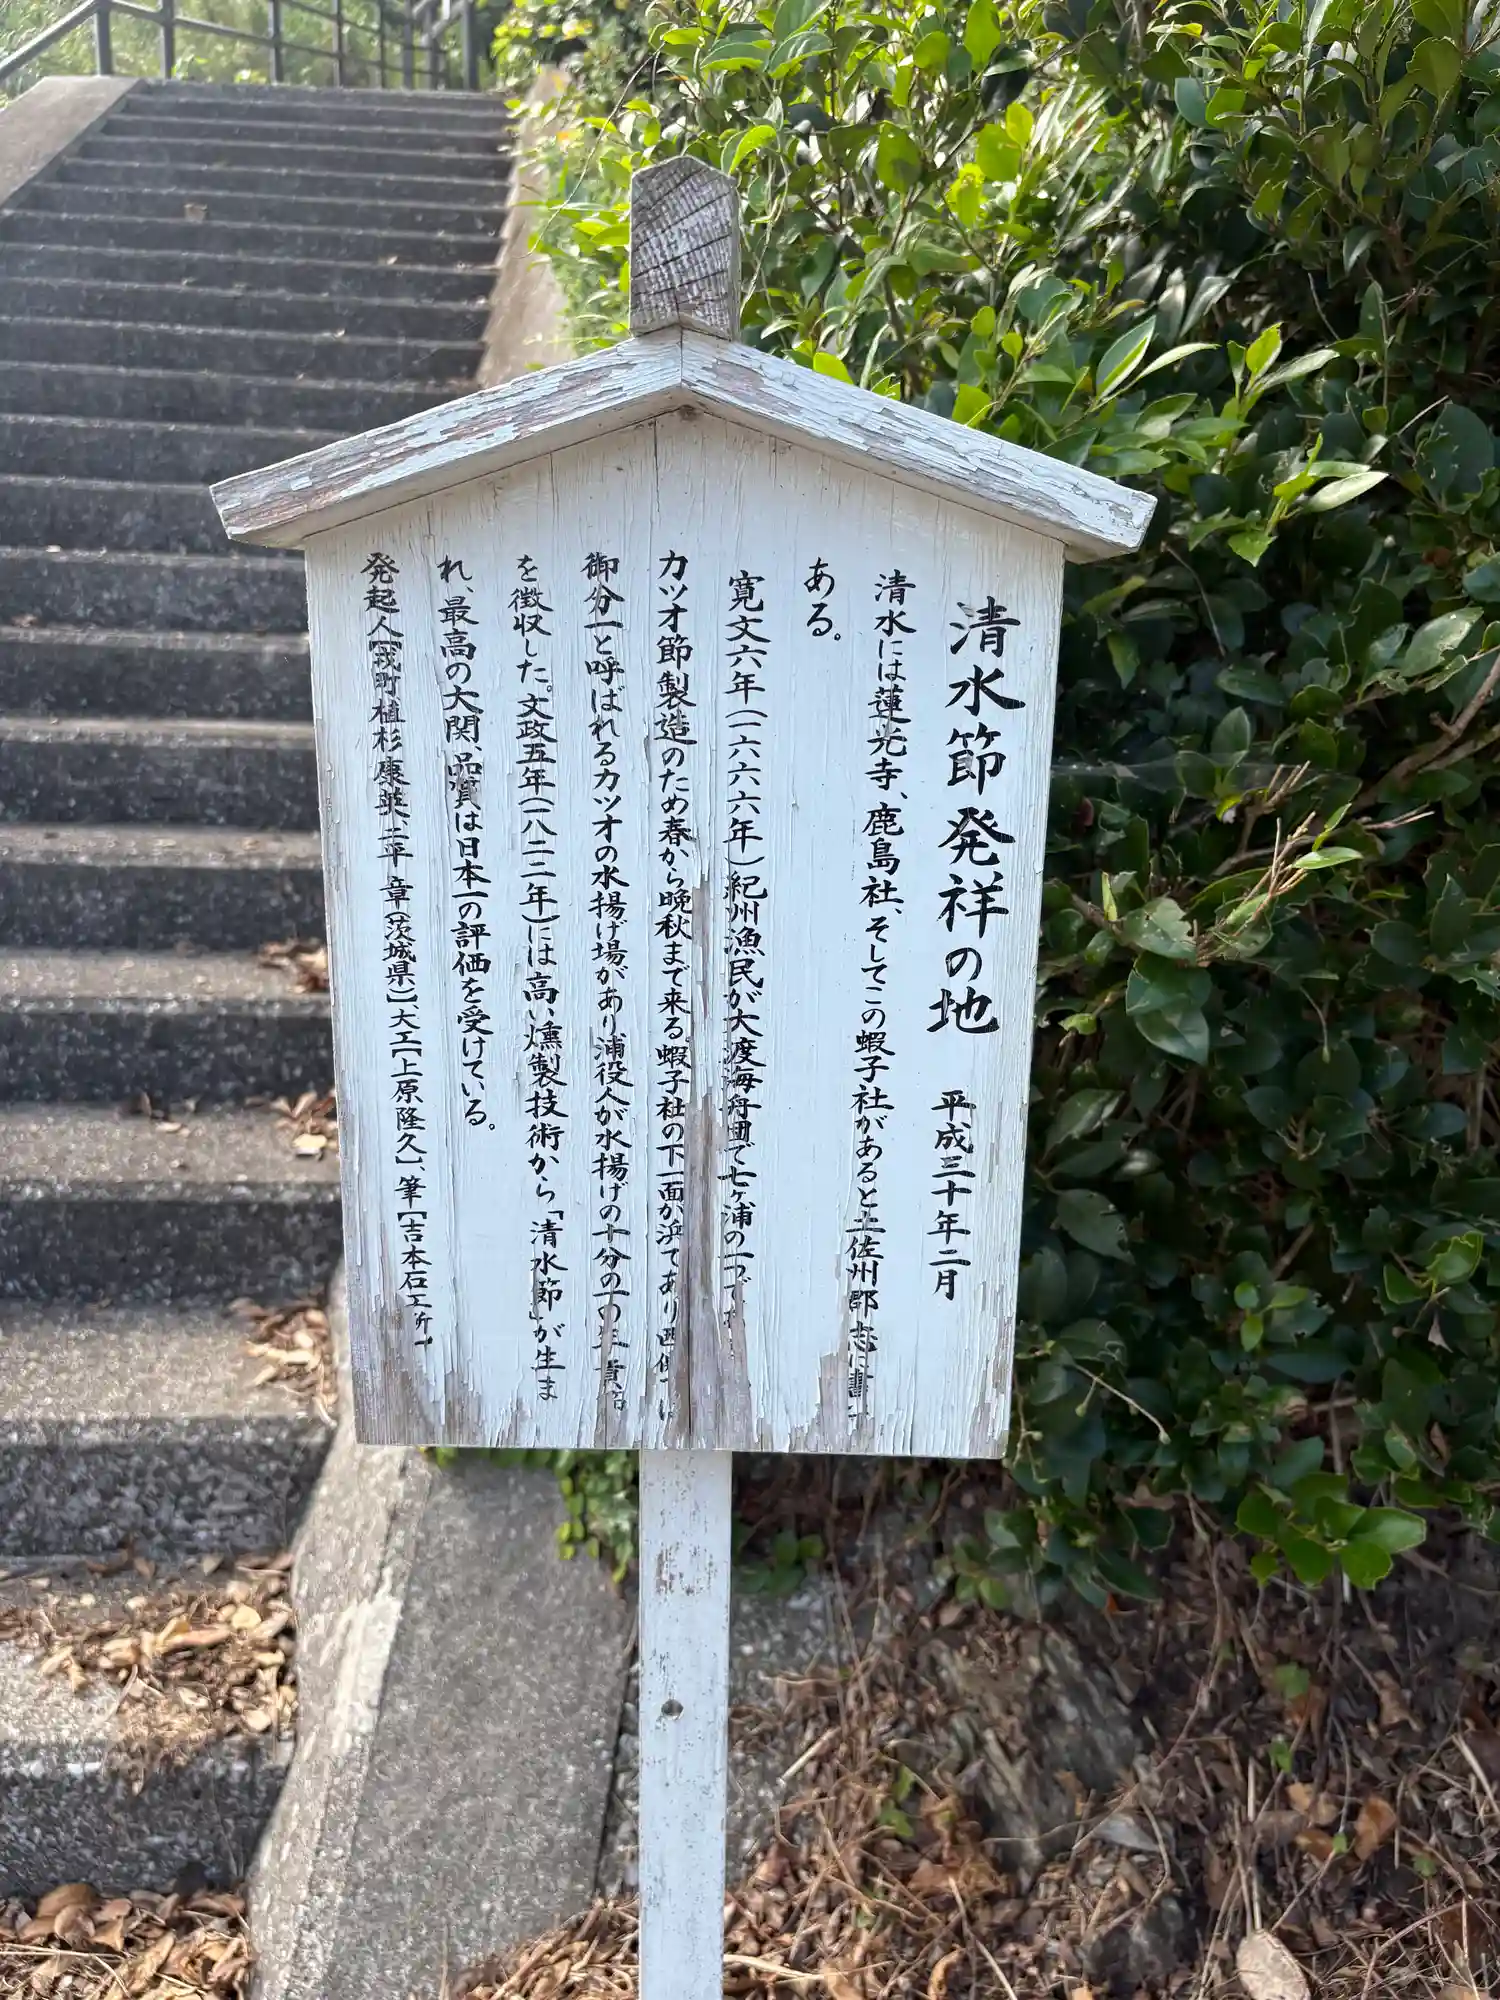 清水節発祥の地　平成三十年二月
清水には蓮光寺、鹿島社、そしてこの蝦子社があると土佐州郡志に書
ある。
寛文六年(一六六六年)紀州漁民が大渡海舟団で七ヶ浦の一つで
カツオ節製造のため春から晩秋まで来る。蝦子社の下一面が浜であり西側
御分一と呼ばれるカツオの水揚げ場があり浦役人が水揚げの十分の一の生
を徴収した。文政五年(一八二二年)には高い燻製技術から「清水節」が生ま
れ、最高の大関、品質は日本一の評価を受けている。
発起人【戎町植杉康英、二平 章(茨城県)】、大工【上原隆久】、筆【吉本石工所